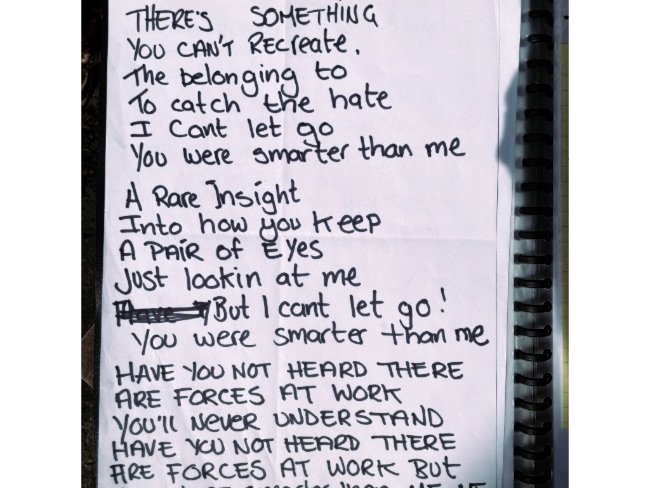 THERE'S SOMETHING
YOU CAN'T RECREATE.
The belonging to
To catch the hate
I Cant let go
You were smarter than me
A Rare Insight
Into how you keep
A PAIR of EYes
Just lookin at me
But I cant let go!
You were smarter than me
HAVE YOU NOT HEARD THERE
ARE FORCES AT WORK
YOU'll NeveR UNDERSTAND
HAVE YOU NOT HEARD THERE
ARE FORCES AT WORK BUT